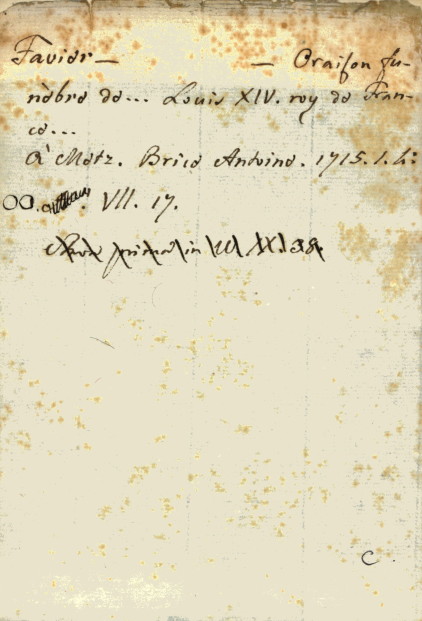 Favier — — Oraison fu-
nèbre de... Louis XIV. roy de Fran-
ce...
A Metz. Brice Antoine. 1715. 1. L:
OO. VII. 17.
in XI. 38.
C.